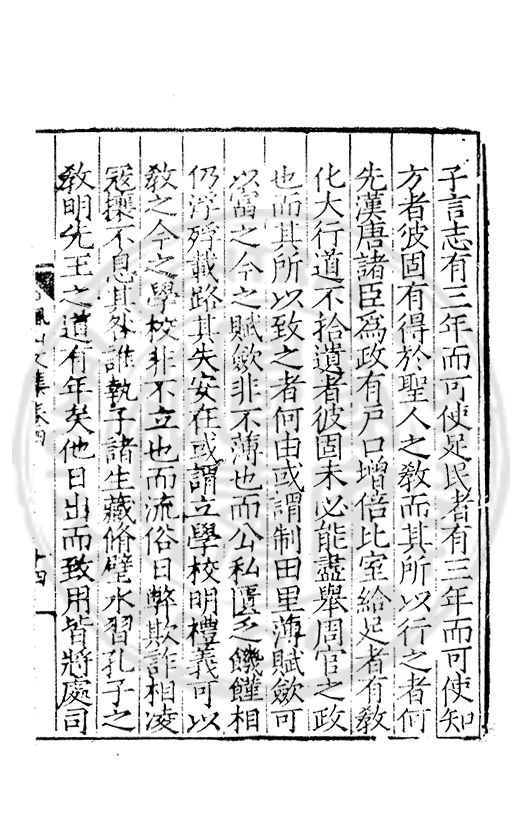 子言志有三年而可使足民者有三年而可使知
方者彼固有得於聖人之教而其所以行之者何
先漢唐諸臣爲政有戸口增倍比室給足者有教
化大行道不拾遺者彼固未必能盡舉周官之政
也而其所以致之者何由或謂制田里薄賦歛可
以富之今之賦歛非不薄也而公私匱乏饑饉相
仍浮殍載路其失安在或謂立學校明禮義可以
教之今之學校非不立也而流俗日弊欺詐相凌
寇攘不息其咎誰執子諸生藏脩璧水習孔子之
教明先王之道有年矣他日出而致用皆將處司
山文集卷四
十四